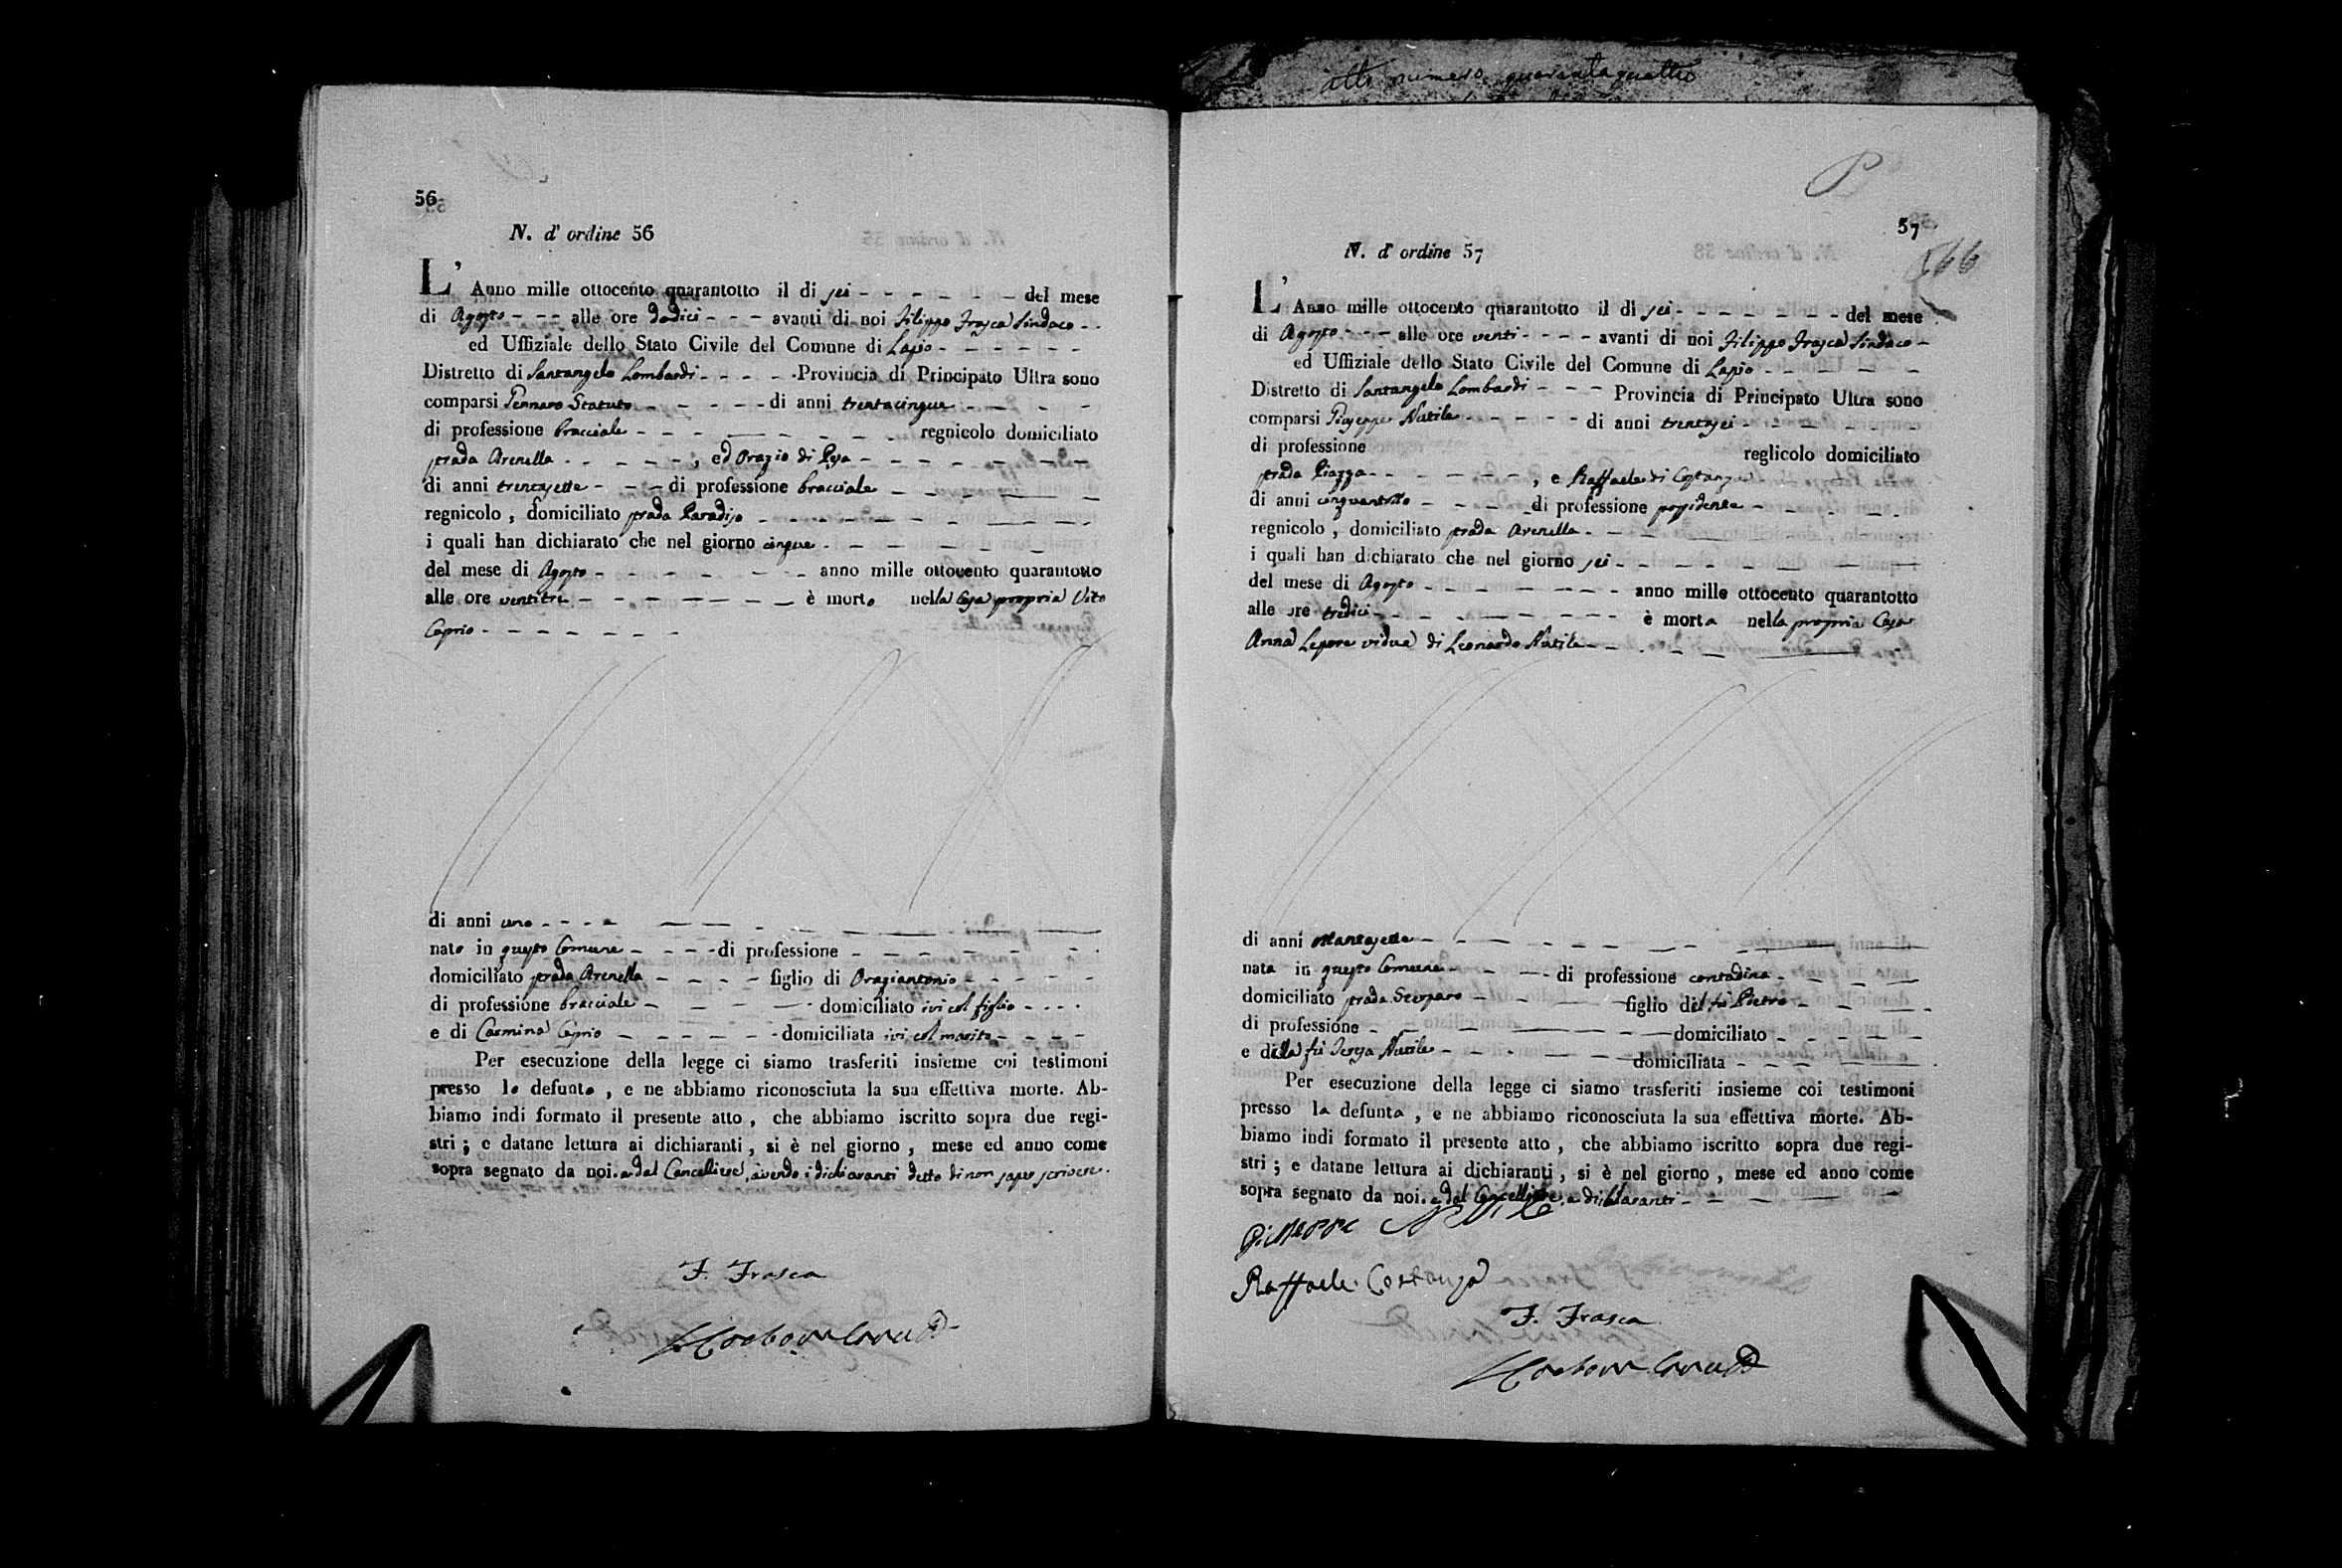 atto numero quarantaquattro
56
N. d' ordine 56
L' Anno mille ottocento quarantotto il di sei - - - - - - del mese
di Agosto - - - alle ore dodici - - - avanti di noi Filippo Frasca Sindaco - -
ed Uffiziale dello Stato Civile del Comune di Lapio - - - - - -
Distretto di Santangelo Lombardi - - - - - Provincia di Principato Ultra sono
comparsi Gennaro Statuto - - - - - di anni trentacinque - - - -
di professione bracciale - - - - - - - - regnicolo domiciliato
strada Arenella - - - - - , ed Orazio di Pesa - - - - - - - -
di anni trentasette - - - di professione bracciale - - - - - -
regnicolo , domiciliato strada Paradiso - - - - - - - - - -
i quali han dichiarato che nel giorno cinque - - - - - - -
del mese di Agosto - - - - - - - anno mille ottocento quarantotto
alle ore ventitre - - - - - - - è morto nella Casa propria Vito
Caprio - - - - - - -
di anni uno - - - -
nato in questo Comune - - - - di professione - - - - - - -
domiciliato strada Arenella - - - - figlio di Oragiantonio - - - - -
di professione bracciale - - - - domiciliato ivi col figlio - - - -
e di Carmina Caprio - - - - - - domiciliata ivi col marito - - - -
Per esecuzione della legge ci siamo trasferiti insieme coi testimoni
presso lo defunto , e ne abbiamo riconosciuta la sua effettiva morte. Ab-
biamo indi formato il presente atto , che abbiamo iscritto sopra due regi-
stri ; e datane lettura ai dichiaranti , si è nel giorno , mese ed anno come
sopra segnato da noi. e dal Cancelliere, avendo i dichiaranti detto di non saper scrivere.
F. Frasca
57
566
N. d' ordine 57
L' Anno mille ottocento quarantotto il dì sei - - - - - - - del mese
di Agosto - - - alle ore venti - - - - avanti di noi Filippo Frasca Sindaco -
ed Uffiziale dello Stato Civile del Comune di Lapio - - - - - -
Distretto di Santangelo Lombardi - - - Provincia di Principato Ultra sono
comparsi Giuseppe Nutile - - - - - di anni trentasei - - - - - -
di professione reglicolo domiciliato
strada Piazza - - - - - - , e Raffaele di Costanza
di anni cinquantotto - - - - di professione possidente - - - - -
regnicolo , domiciliato strada Arenella - - - -
i quali han dichiarato che nel giorno sei - - - - - - - -
del mese di Agosto - - - - - - - anno mille ottocento quarantotto
alle ore tredici - - - - - - - - è morta nella propria Casa
Anna Lepore vidua di Leonardo Nutile - - - - -
di anni ottantasette - - - - - - - - -
nata in questo Comune - - - - di professione contadina - - - - -
domiciliato strada Scorparo - - - - figlio del fù Pietro - - - -
di professione - - - - - - - domiciliato - - - - -
e della fù Teresa Nutile - - - - - - domiciliata - - - -
Per esecuzione della legge ci siamo trasferiti insieme coi testimoni
presso la defunta , e ne abbiamo riconosciuta la sua effettiva morte. Ab-
biamo indi formato il presente atto , che abbiamo iscritto sopra due regi-
stri ; e datane lettura ai dichiaranti , si è nel giorno , mese ed anno come
sopra segnato da noi. e dal Cancelliere, e dichiaranti - - - -
Giuseppe Nutile
Raffaele Costanza
F. Frasca